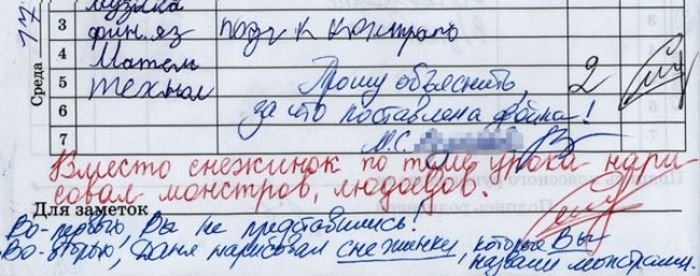 17
Среда
музыка
3 фин. яз подг к контрого
4 Матем
5 технол Прошу объяснить, 2
6 за что поставлена двойка!
7 М.С.
Вместо снежинок по теме урока нари
совал монстров, людоедов.
Для заметок
Во-первых, Вы не представились!
Во-вторых, Даня нарисовал снежинки, которые Вы
назвали монстрами.